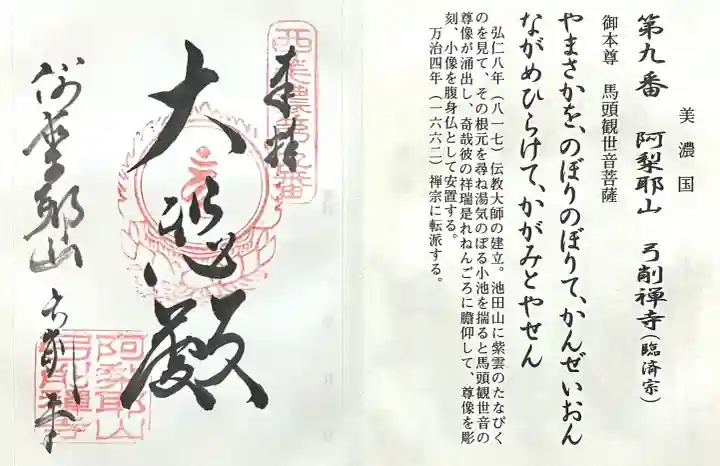 美濃国
第九番 阿梨耶山 弓削禅寺(臨済宗)
御本尊 馬頭観世音菩薩
やまさかを、のぼりのぼりて、かんぜいおん
ながめひらけて、かがみとやせん
弘仁八年(八一七)伝教大師の建立。池田山に紫雲のたなびく
のを見て、その根元を尋ね湯気のぼる小池を揣ると馬頭観世音の
尊像が涌出し、奇哉彼の祥瑞是れねんごろに膽仰して、尊像を彫
刻、小像を腹身仏として安置する。
万治四年(一六六二)禅宗に転派する。
西美濃第九番
奉拝
大悲殿
阿梨耶山 弓削寺
阿梨耶山
弓削禅寺